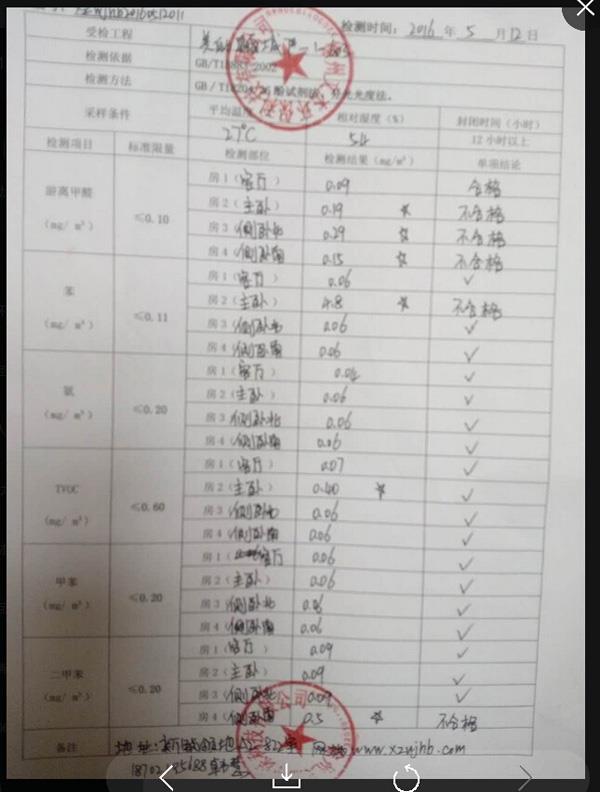 检测时间: 2016 年 5 月 12 日
受检工程
检测依据 GB/T18883-2002
检测方法 酚试剂法、分光光度法。
采样条件 平均温度 相对湿度（%） 封闭时间（小时）
27℃ 54 12小时以上
检测项目 标准限量 检测部位 检测结果（mg/m³） 单项结论
游离甲醛（mg/ m³） ≤0.10
房1（客厅） 0.09 合格
房2（主卧） 0.19 ☆ 不合格
房3（侧卧北 0.29 ☆ 不合格
房4（侧卧南 0.15 ☆ 不合格
苯（mg/ m³） ≤0.11
房1（客厅） 0.06 ✓
房2（主卧） 4.8 ☆ 不合格
房3（侧卧北 0.06 ✓
房4（侧卧南 0.06 ✓
氨（mg/ m³） ≤0.20
房1（客厅） ✓
房2（主卧） 0.06 ✓
房3（侧卧北 0.06 ✓
房4（侧卧南 0.06 ✓
TVOC（mg/ m³） ≤0.60
房1（客厅） 0.07 ✓
房2（主卧） 0.40 ☆ ✓
房3（侧卧北 0.06 ✓
房4（侧卧南 0.06 ✓
甲苯（mg/ m³） ≤0.20
房1（客厅 0.06 ✓
房2（主卧） 0.06 ✓
房3（侧卧北 ✓
房4（侧卧南 0.06 ✓
二甲苯（mg/ m³） ≤0.20
房1（客厅 0.09 ✓
房2（主卧） 0.09 ✓
房3（侧卧北 0.09 ✓
房4（侧卧南 0.5 ☆ 不合格
备注 地址: www.xzwjhb.com